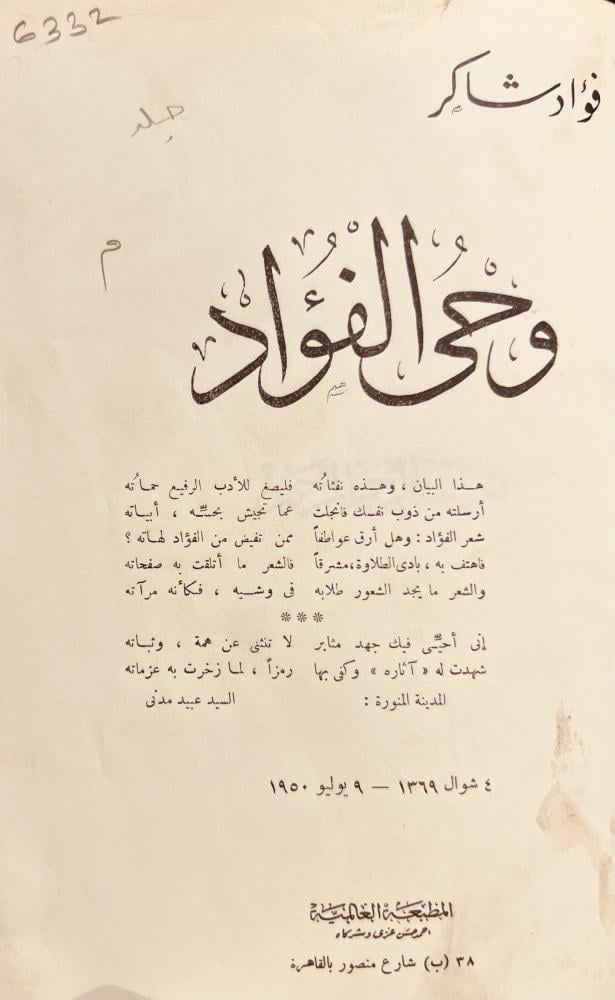 6332
فؤاد شاكر
جلد
م
وحي الفؤاد
هذا البيان ، وهذه نفثاته فليصغ للأدب الرفيع حماته
أرسلته من ذوب نفسك فانجلت عما تجيش بحسّه ، أبياته
شعر الفؤاد : وهل أرق عواطفاً ممن تفيض من الفؤاد لهاته ؟
فاهتف به ، بادى الطلاوة ، مشرقاً فالشعر ما أتلقت به صفحاته
والشعر ما يجد الشعور طلابه فى وشيه ، فكأنه مرآته
***
إنى أحيّى فيك جهد مثابر لا تنثنى عن همة ، وثباته
شهدت له « آثاره » وكفى بها رمزاً ، لما زخرت به عزماته
المدينة المنورة : السيد عبيد مدنى
٤ شوال ١٣٦٩ — ٩ يوليو ١٩٥٠
المطبعة العالمية
احمد حسن عزى وشركاه
٣٨ (ب) شارع منصور بالقاهرة